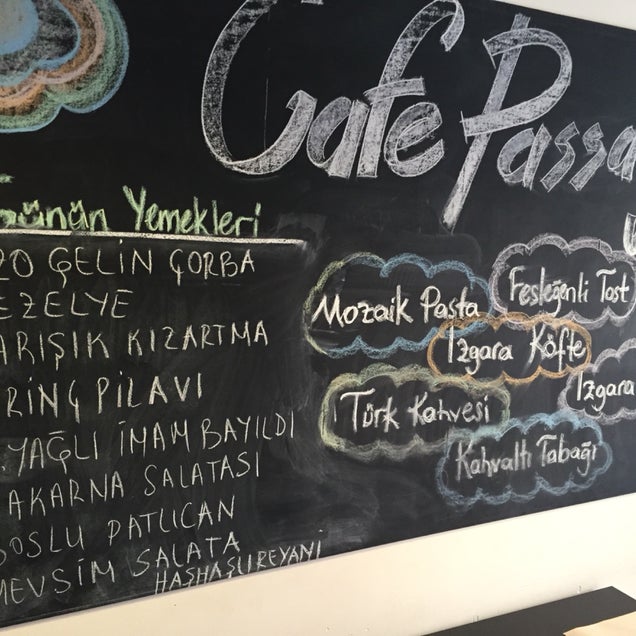 Cafe Passa
Günün Yemekleri
ZO GELİN ÇORBA
EZELYE
ARIŞIK KIZARTMA
RİNÇ PİLAVI
.YAĞLI İMAM BAYILDI
AKARNA SALATASI
OSLU PATLICAN
MEVSİM SALATA
HAŞHAŞLI REYANİ
Mozaik Pasta
Fesleğenli Tost
Izgara Köfte
Izgara
Türk Kahvesi
Kahvaltı Tabağı